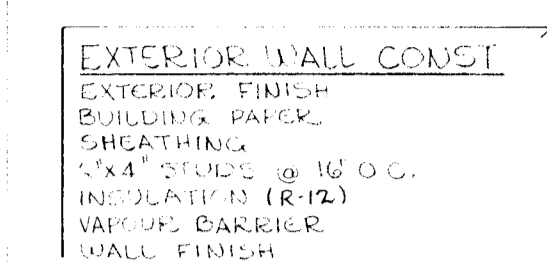 EXTERIOR WALL CONST
EXTERIOR FINISH
BUILDING PAPER
SHEATHING
2"x4" STUDS @ 16" O.C.
INSULATION (R-12)
VAPOUR BARRIER
WALL FINISH